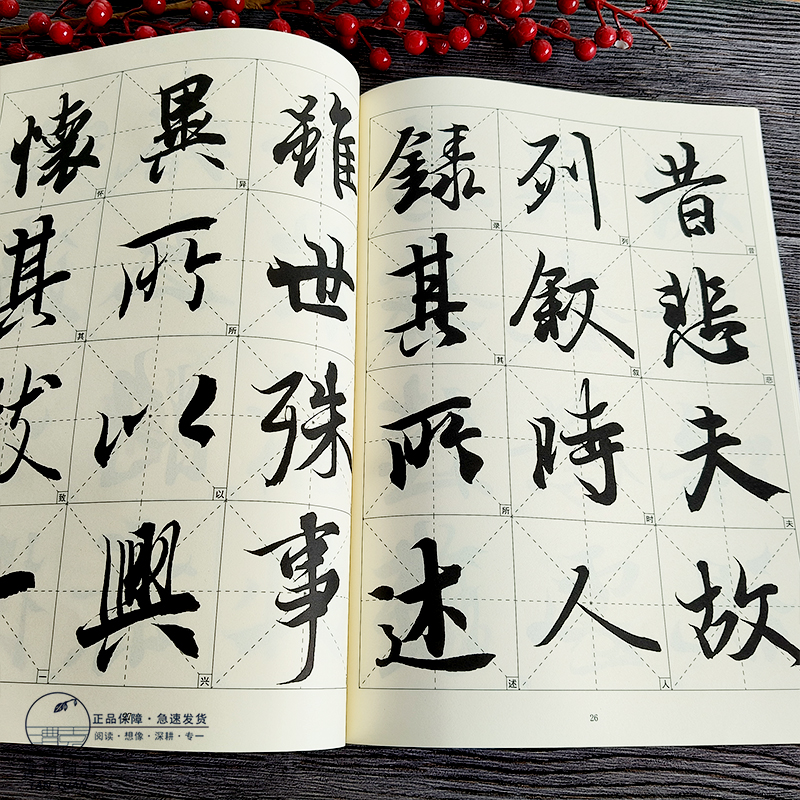 昔悲夫故
昔
悲
夫
列叙時人
列
叙
时
人
録其所述
录
其
所
述
26
雖世殊事
異所以興
异
所
以
兴
懷其致一
怀
其
致
一
正品保障·急速发货
阅读·想像·深耕·专一